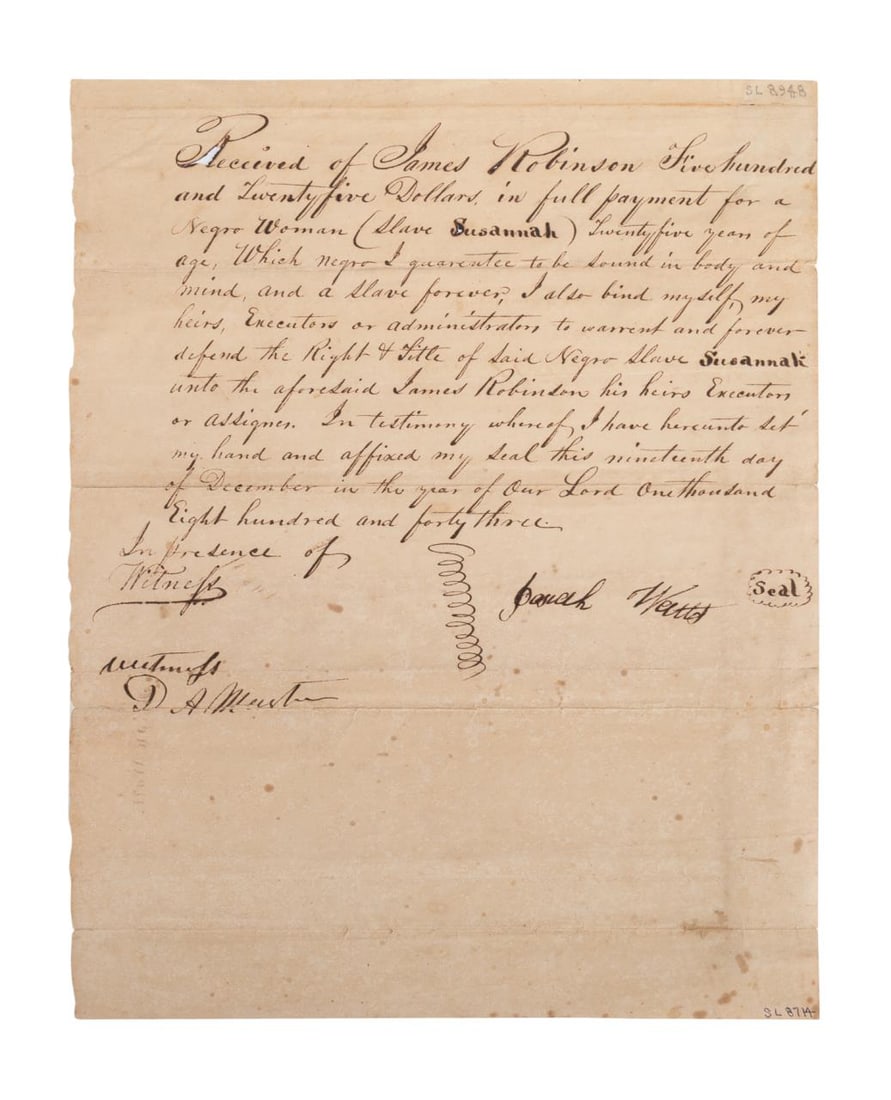 SL 8948
Received of James Robinson Five hundred
and Twentyfive Dollars, in full payment for a
Negro Woman (Slave Susannah) Twentyfive years of
age, Which negro I guarentee to be sound in body and
mind, and a slave forever, I also bind myself, my
heirs, Executors or administrators to warrent and forever
defend the Right & Title of said Negro slave Susannah
unto the aforesaid James Robinson his heirs Executors
or assignes. In testimony whereof I have hereunto set
my hand and affixed my seal this nineteenth day
of December in the year of Our Lord One thousand
Eight hundred and forty three.
In presence of
Witness
Watts Seal
witness
D A
SL 8714